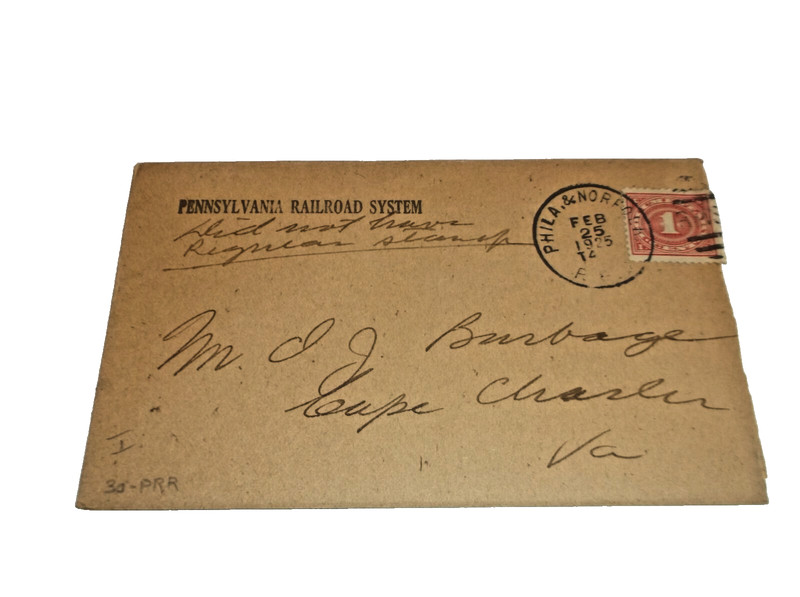 PENNSYLVANIA RAILROAD SYSTEM
Did not have
Regular stamp
PHILA. & NORF
FEB
25
1925
T4
R
1
Mr. I J Burbage
Cape Charles
Va
I.
30-PRR